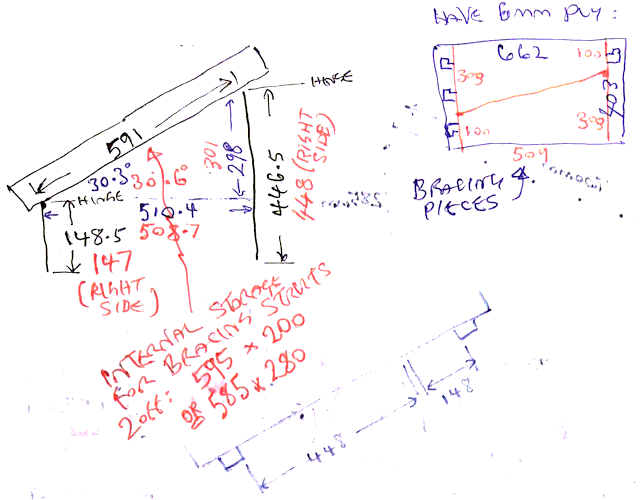 HAVE 6mm PLY:
662
100
309
403
309
100
509
BRACING
PIECES
HINGE
591
301
298
446.5
448 (RIGHT
SIDE)
30.3°
30.6°
HINGE
510.4
508.7
148.5
147
(RIGHT
SIDE)
INTERNAL STORAGE
FOR BRACING STRUTS
2 OFF: 595 × 200
OR 585 × 280
448
148